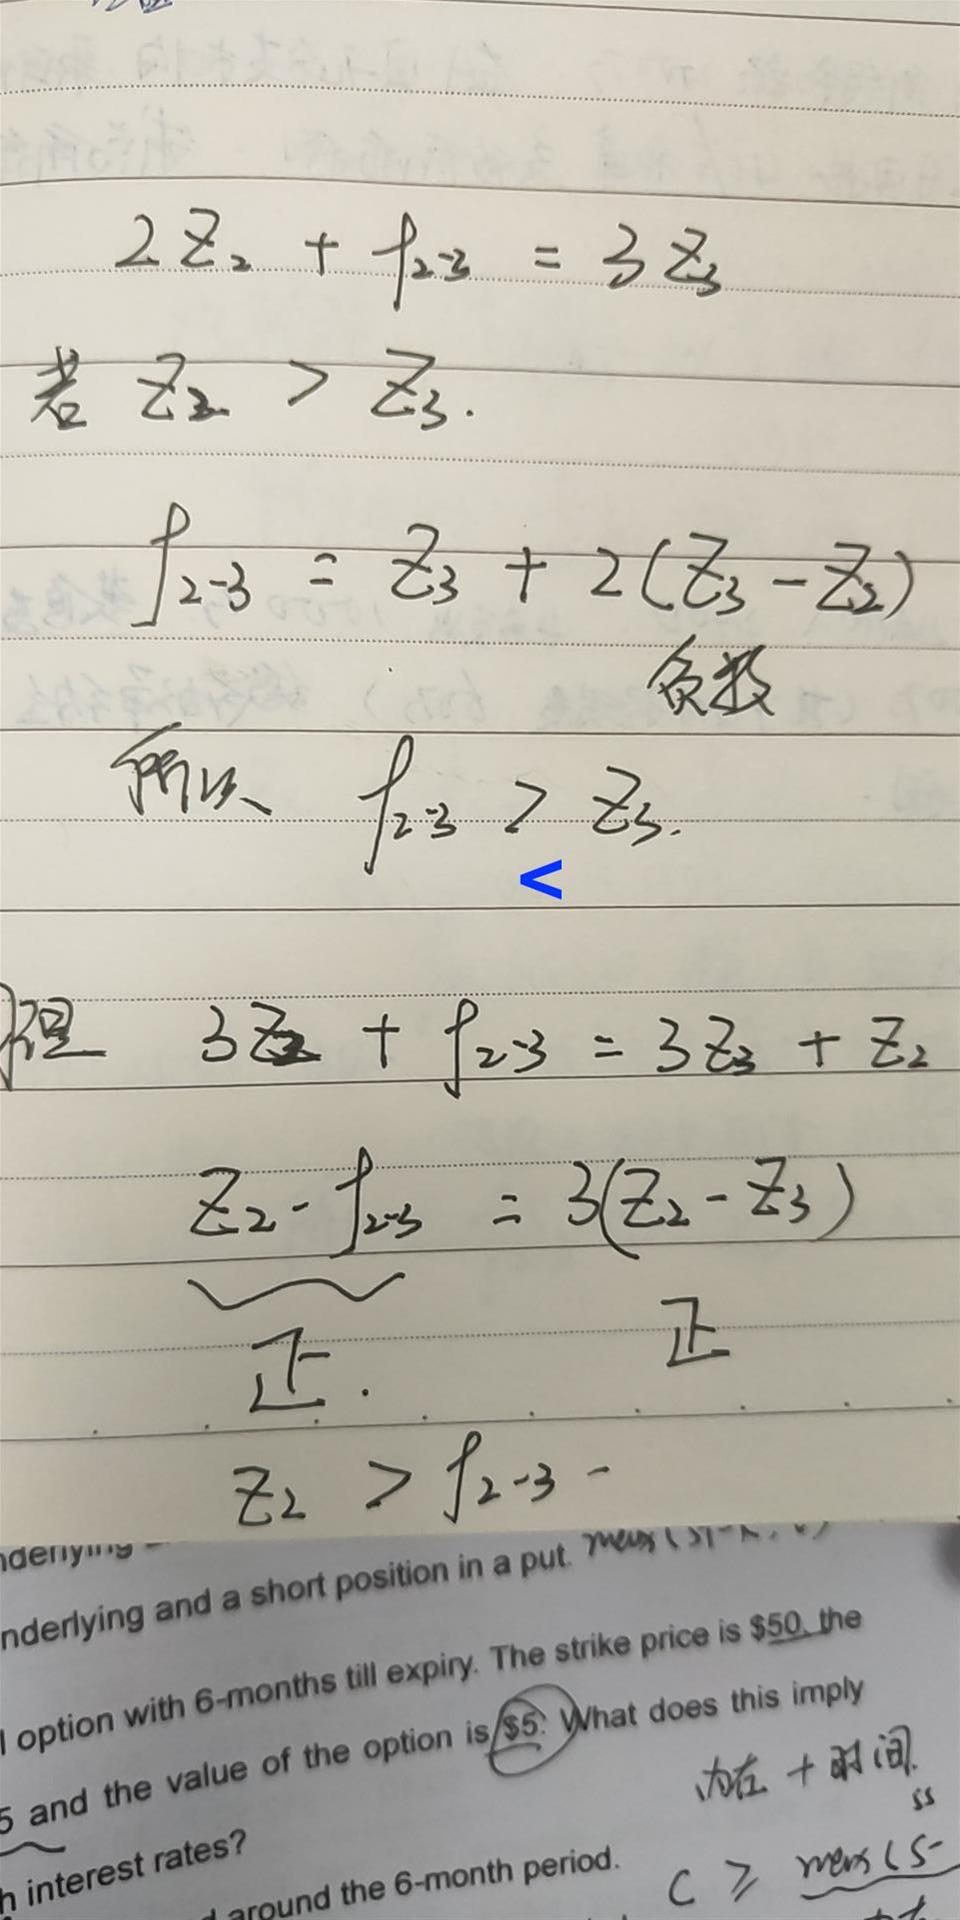 2Z₂ + f₂₋₃ = 3Z₃
若 Z₂ > Z₃.
f₂₋₃ = Z₃ + 2(Z₃ - Z₂)
负数
所以 f₂₋₃ > Z₃.
<
理 3Z₂ + f₂₋₃ = 3Z₃ + Z₂
Z₂ - f₂₋₃ = 3(Z₂ - Z₃)
正. 正
Z₂ > f₂₋₃ -
nderlying and a short position in a put.
l option with 6-months till expiry. The strike price is $50, the
5 and the value of the option is $5. What does this imply
内在 + 时间.
h interest rates?
around the 6-month period.
C ≥